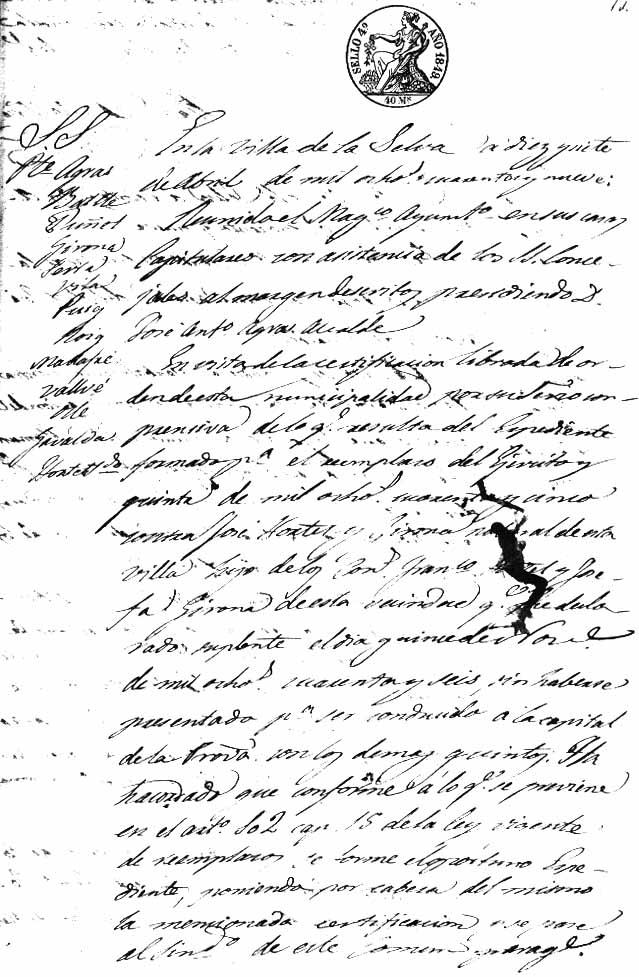 13.
SELLO 4º AÑO 1849.
40 Ms
SS
Pte Agras
Batlle
Puñol
Girona
Ysla
Puig
Roig
Madapé
Vallvé
Olle
Gavalda
Hortet
En la Villa de la Selva a diez y siete
de Abril de mil ochos cuarenta y nueve:
Reunido el Magco Ayuntto en sus casas
Capitulares con asistencia de los SS. Conce-
jales al margen descritos, presidiendo D.
José Anto Agras Alcalde
En vista de la certificacion librada de or-
den de esta municipalidad por su Serio con-
prensiva de lo q.e resulta del Espediente
formado pa el reemplaso del Ejercito y
quinta de mil ochos cuarenta y cinco
contra José Hortet y Girona natural de esta
villa hijo de los Cons Franco Hortet y Jose-
fa Girona de esta vecindad q.e fue decla-
rado suplente el dia quince de Nove
de mil ochos cuarenta y seis, sin haberse
presentado pa ser conducido á la capital
de la Prova con los demas quintos. Ha
hacordado que conforme á lo q.e se previene
en el arto 102 cap. 15 de la ley vigente
de reemplasos se forme el oportuno Espe-
diente, poniendo por cabesa del mismo
la mencionada certificacion y se pase
al Sindo de este Comun para q.e